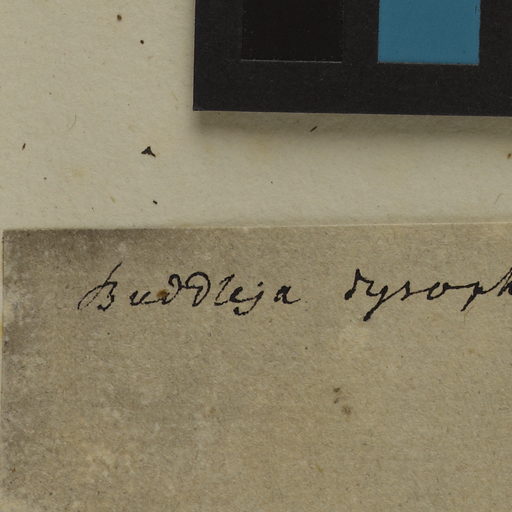 Buddleja dysoph